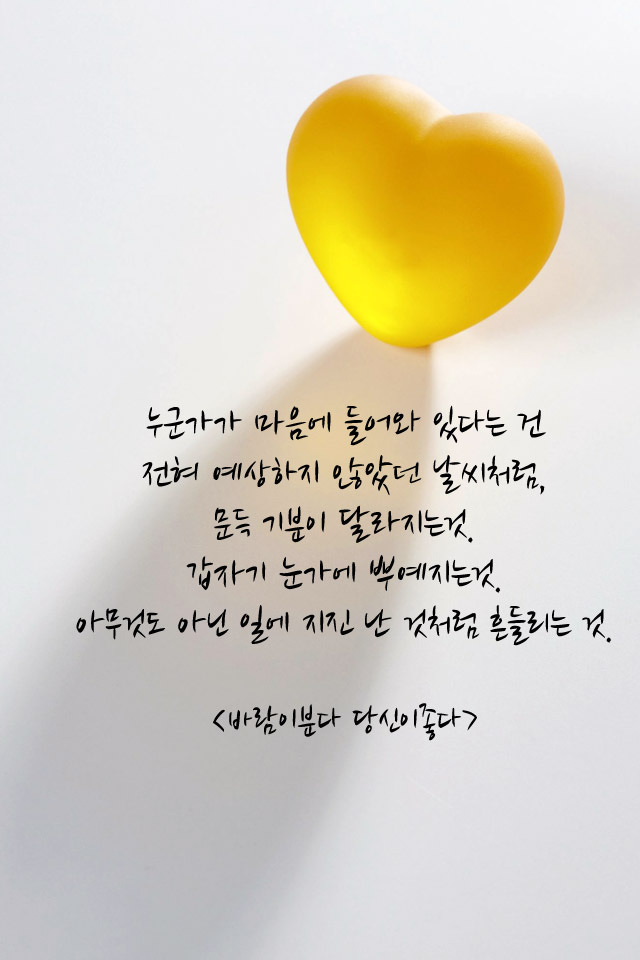 누군가가 마음에 들어와 있다는 건
전혀 예상하지 않았던 날씨처럼,
문득 기분이 달라지는것.
갑자기 눈가에 뿌예지는것.
아무것도 아닌 일에 지진 난 것처럼 흔들리는 것.
<바람이분다 당신이좋다>